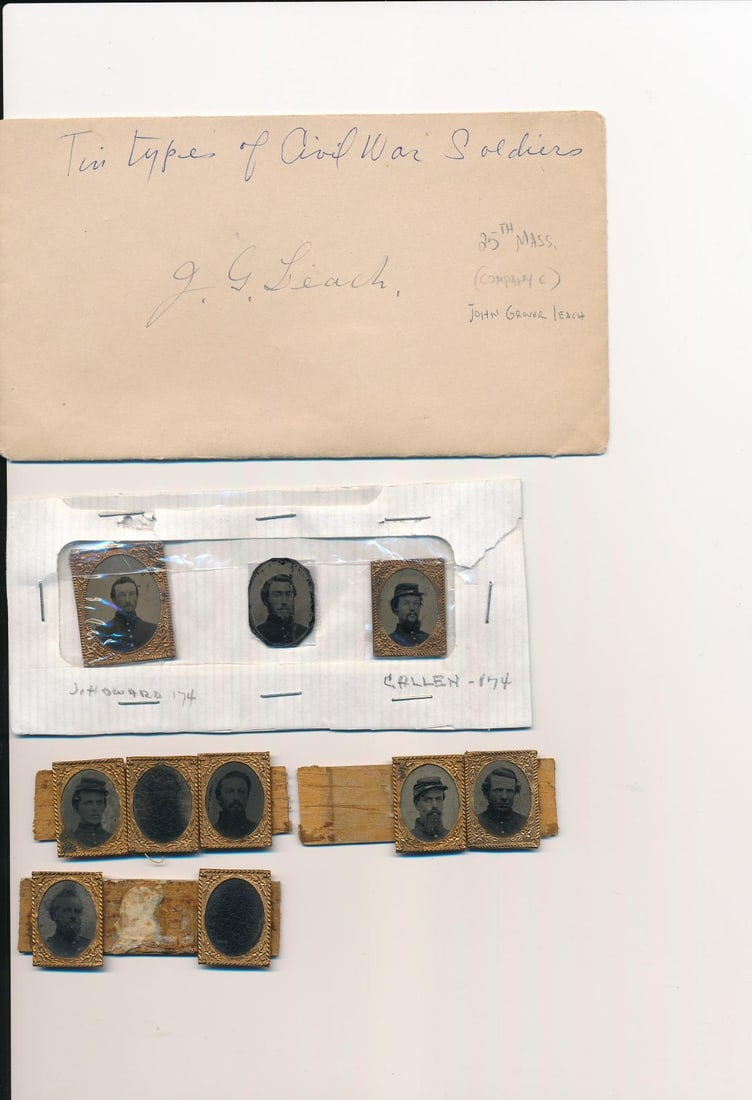 Tin types of Civil War Soldiers
J. G. Leach.
25TH MASS.
(COMPANY C)
JOHN GROVER LEACH
J. HOWARD 174
C ALLEN - 174